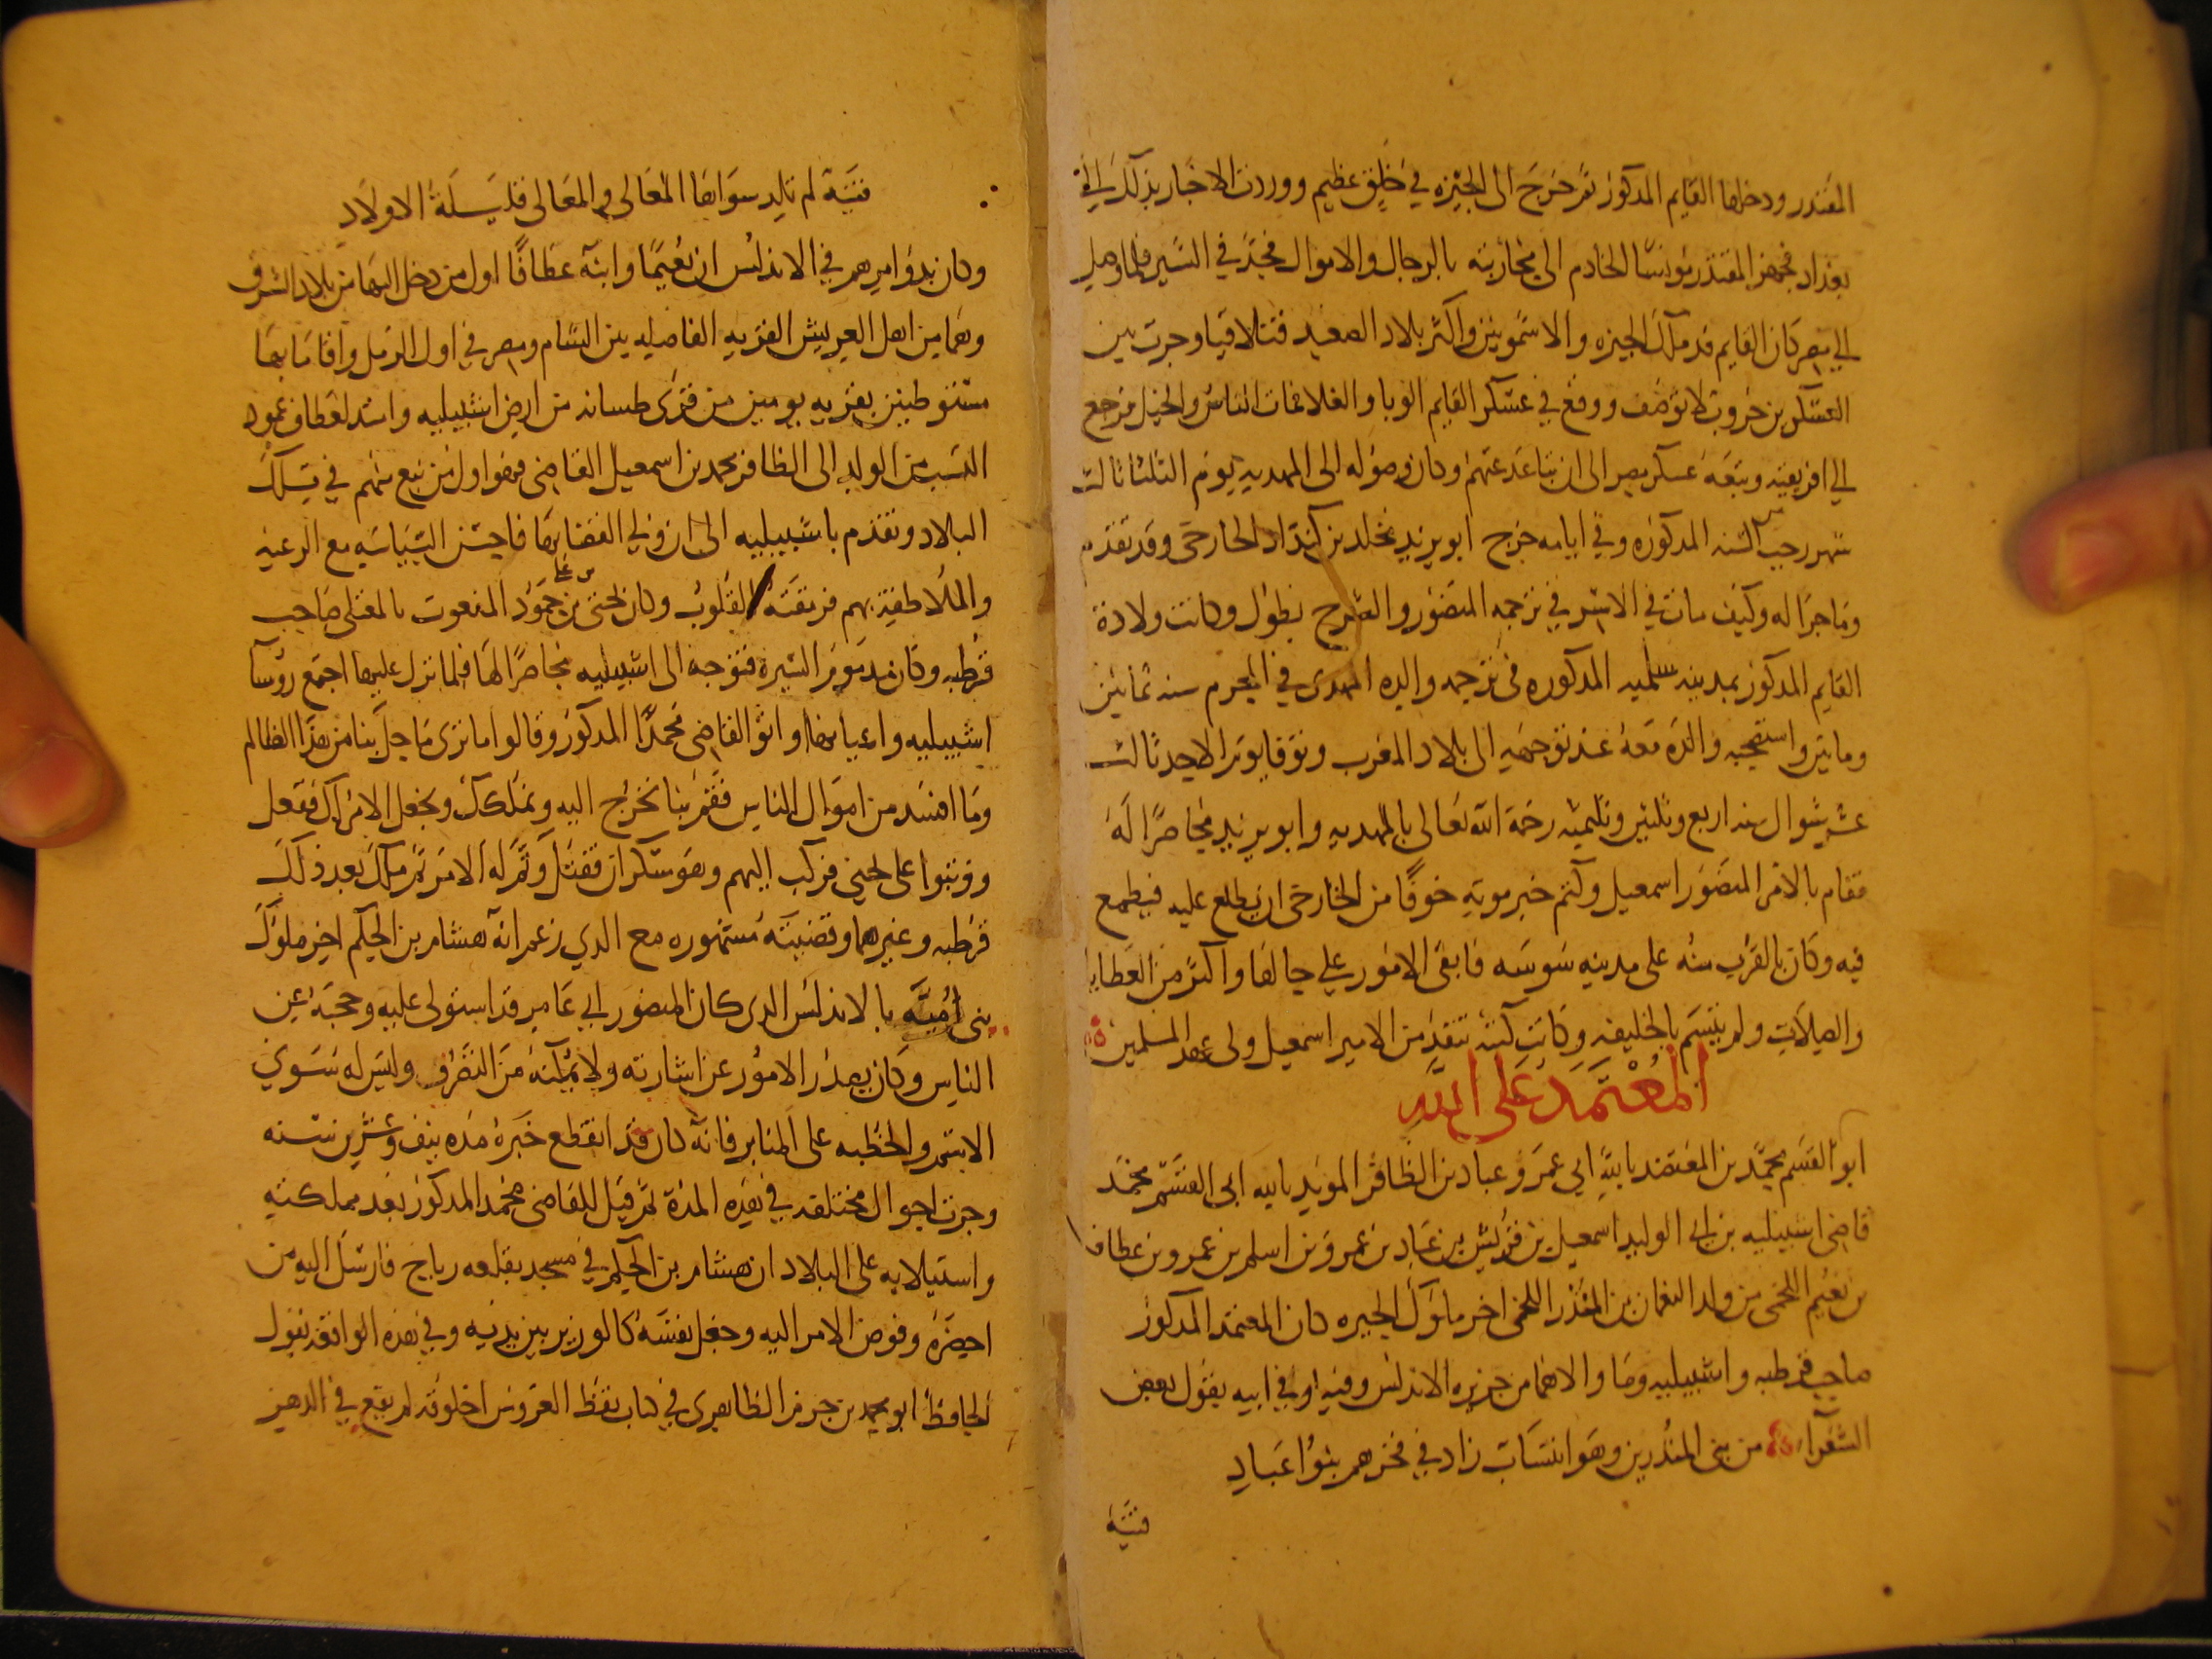 المقتدر ودخلها القايم المذكور ثم خرج الى الجيزه في خلق عظيم ووردت الاخبار بذلك الى
بغداد فجهز المقتدر مونسا الخادم الى محاربته بالرجال والاموال فجد في السير فلما وصل
الى مصر كان القايم قد ملك الجيزه والاشمونين واكثر بلاد الصعيد فتلاقيا وجرت بين
العسكرين حروب لا توصف ووقع في عسكر القايم الوبا والغلا فمات الناس والخيل فرجع
الى افريقيه وتبعه عسكر مصر الى ان تباعد عنهم وكان وصوله الى المهديه يوم الثلثا ثالث
شهر رجب من السنه المذكوره وفي ايامه خرج ابو يزيد مخلد بن كيداد الخارجي وقد تقدم
وما جرا له وكيف مات في الاسر في ترجمه المنصور والشرح يطول وكانت ولادة
القايم المذكور بمدينه سلميه المذكوره في ترجمه والده المهدي في المحرم سنه ثمانين
وماتين واستصحبه والده معه عند توجهه الى بلاد المغرب وتوفا يوم الاحد ثالث
عشر شوال سنه اربع وثلثين وثلثميه رحمه الله تعالى بالمهديه وابو يزيد محاصرا له
فقام بالامر المنصور اسمعيل وكتم خبر موته خوفا من الخارجي ان يطلع عليه فيطمع
فيه وكان بالقرب منه على مدينه سوسه فابقى الامور على حالها واكثر من العطايا
والصلات ولم يتسم بالخليفه وكانت كتبه تنفذ من الامير اسمعيل ولى عهد المسلمين
المعتمد على الله
ابو القسم محمد بن المعتضد بالله ابي عمرو عباد بن الظافر المويد بالله ابي القسم محمد
قاضي اشبيليه بن ابي الوليد اسمعيل بن قريش بن عباد بن عمرو بن اسلم بن عمرو بن عطاف
بن نعيم اللخمي من ولد النعمان بن المنذر اللخمي اخر ملوك الحيره كان المعتمد المذكور
صاحب قرطبه واشبيليه وما والاهما من جزيره الاندلس وفيه وفي ابيه يقول بعض
الشعرآء من بني المنذرين وهو انتساب زاد في فخرهم بنوا عباد
فتية
فتية لم تلد سواها المعالي والمعالي قليلة الاولاد
وكان بدؤ امرهم في الاندلس ان نعيما وابنه عطافا اول من دخل اليها من بلاد الشرق
وهما من اهل العريش القريه الفاصله بين الشام ومصر في اول الرمل واقاما بها
مستوطنين بقريه يومين من قرى طسانه من ارض اشبيليه وامتد لعطاف عمود
النسب من الولد الى الظافر محمد بن اسمعيل القاضي فهو اول من نبع منهم في تلك
البلاد وتقدم باشبيليه الى ان ولي القضا بها فاحسن السياسه مع الرعيه
والملاطفة بهم فرمقته القلوب وكان يحيى بن على بن حمود المنعوت بالمعتلى صاحب
قرطبه وكان مذموم السيرة فتوجه الى اشبيليه محاصرا لها فلما نزل عليها اجتمع روسا
اشبيليه واعيانها واتوا القاضي محمدا المذكور وقالوا اما ترى ما حل بنا من هذا الظالم
وما افسد من اموال الناس فقم بنا نخرج اليه ونملكك ونجعل الامر لك ففعل
ووثبوا على يحيى فركب اليهم وهو سكران فقتل وتم له الامر ثم ملك بعد ذلك
قرطبه وغيرها وقضيته مشهوره مع الذي زعم انه هشام بن الحكم اخر ملوك
بني أمية بالاندلس الذي كان المنصور ابي عامر قد استولى عليه وحجبه عن
الناس وكان يصدر الامور عن اشارته ولا يمكنه من التصرف وليس له سوى
الاسم والخطبه على المنابر فانه كان قد انقطع خبره مده نيف وعشرين سنه
وجرت احوال مختلفه في هذه المدة ثم قيل للقاضي محمد المذكور بعد مملكته
واستيلايه على البلاد ان هشام بن الحكم في مسجد بقلعه رباح فارسل اليه من
احضره وفوض الامر اليه وجعل نفسه كالوزير بين يديه وفي هذه الواقعه يقول
الحافظ ابو محمد بن حزم الظاهري في كتاب نقط العروس اخلوقه لم يقع في الدهر